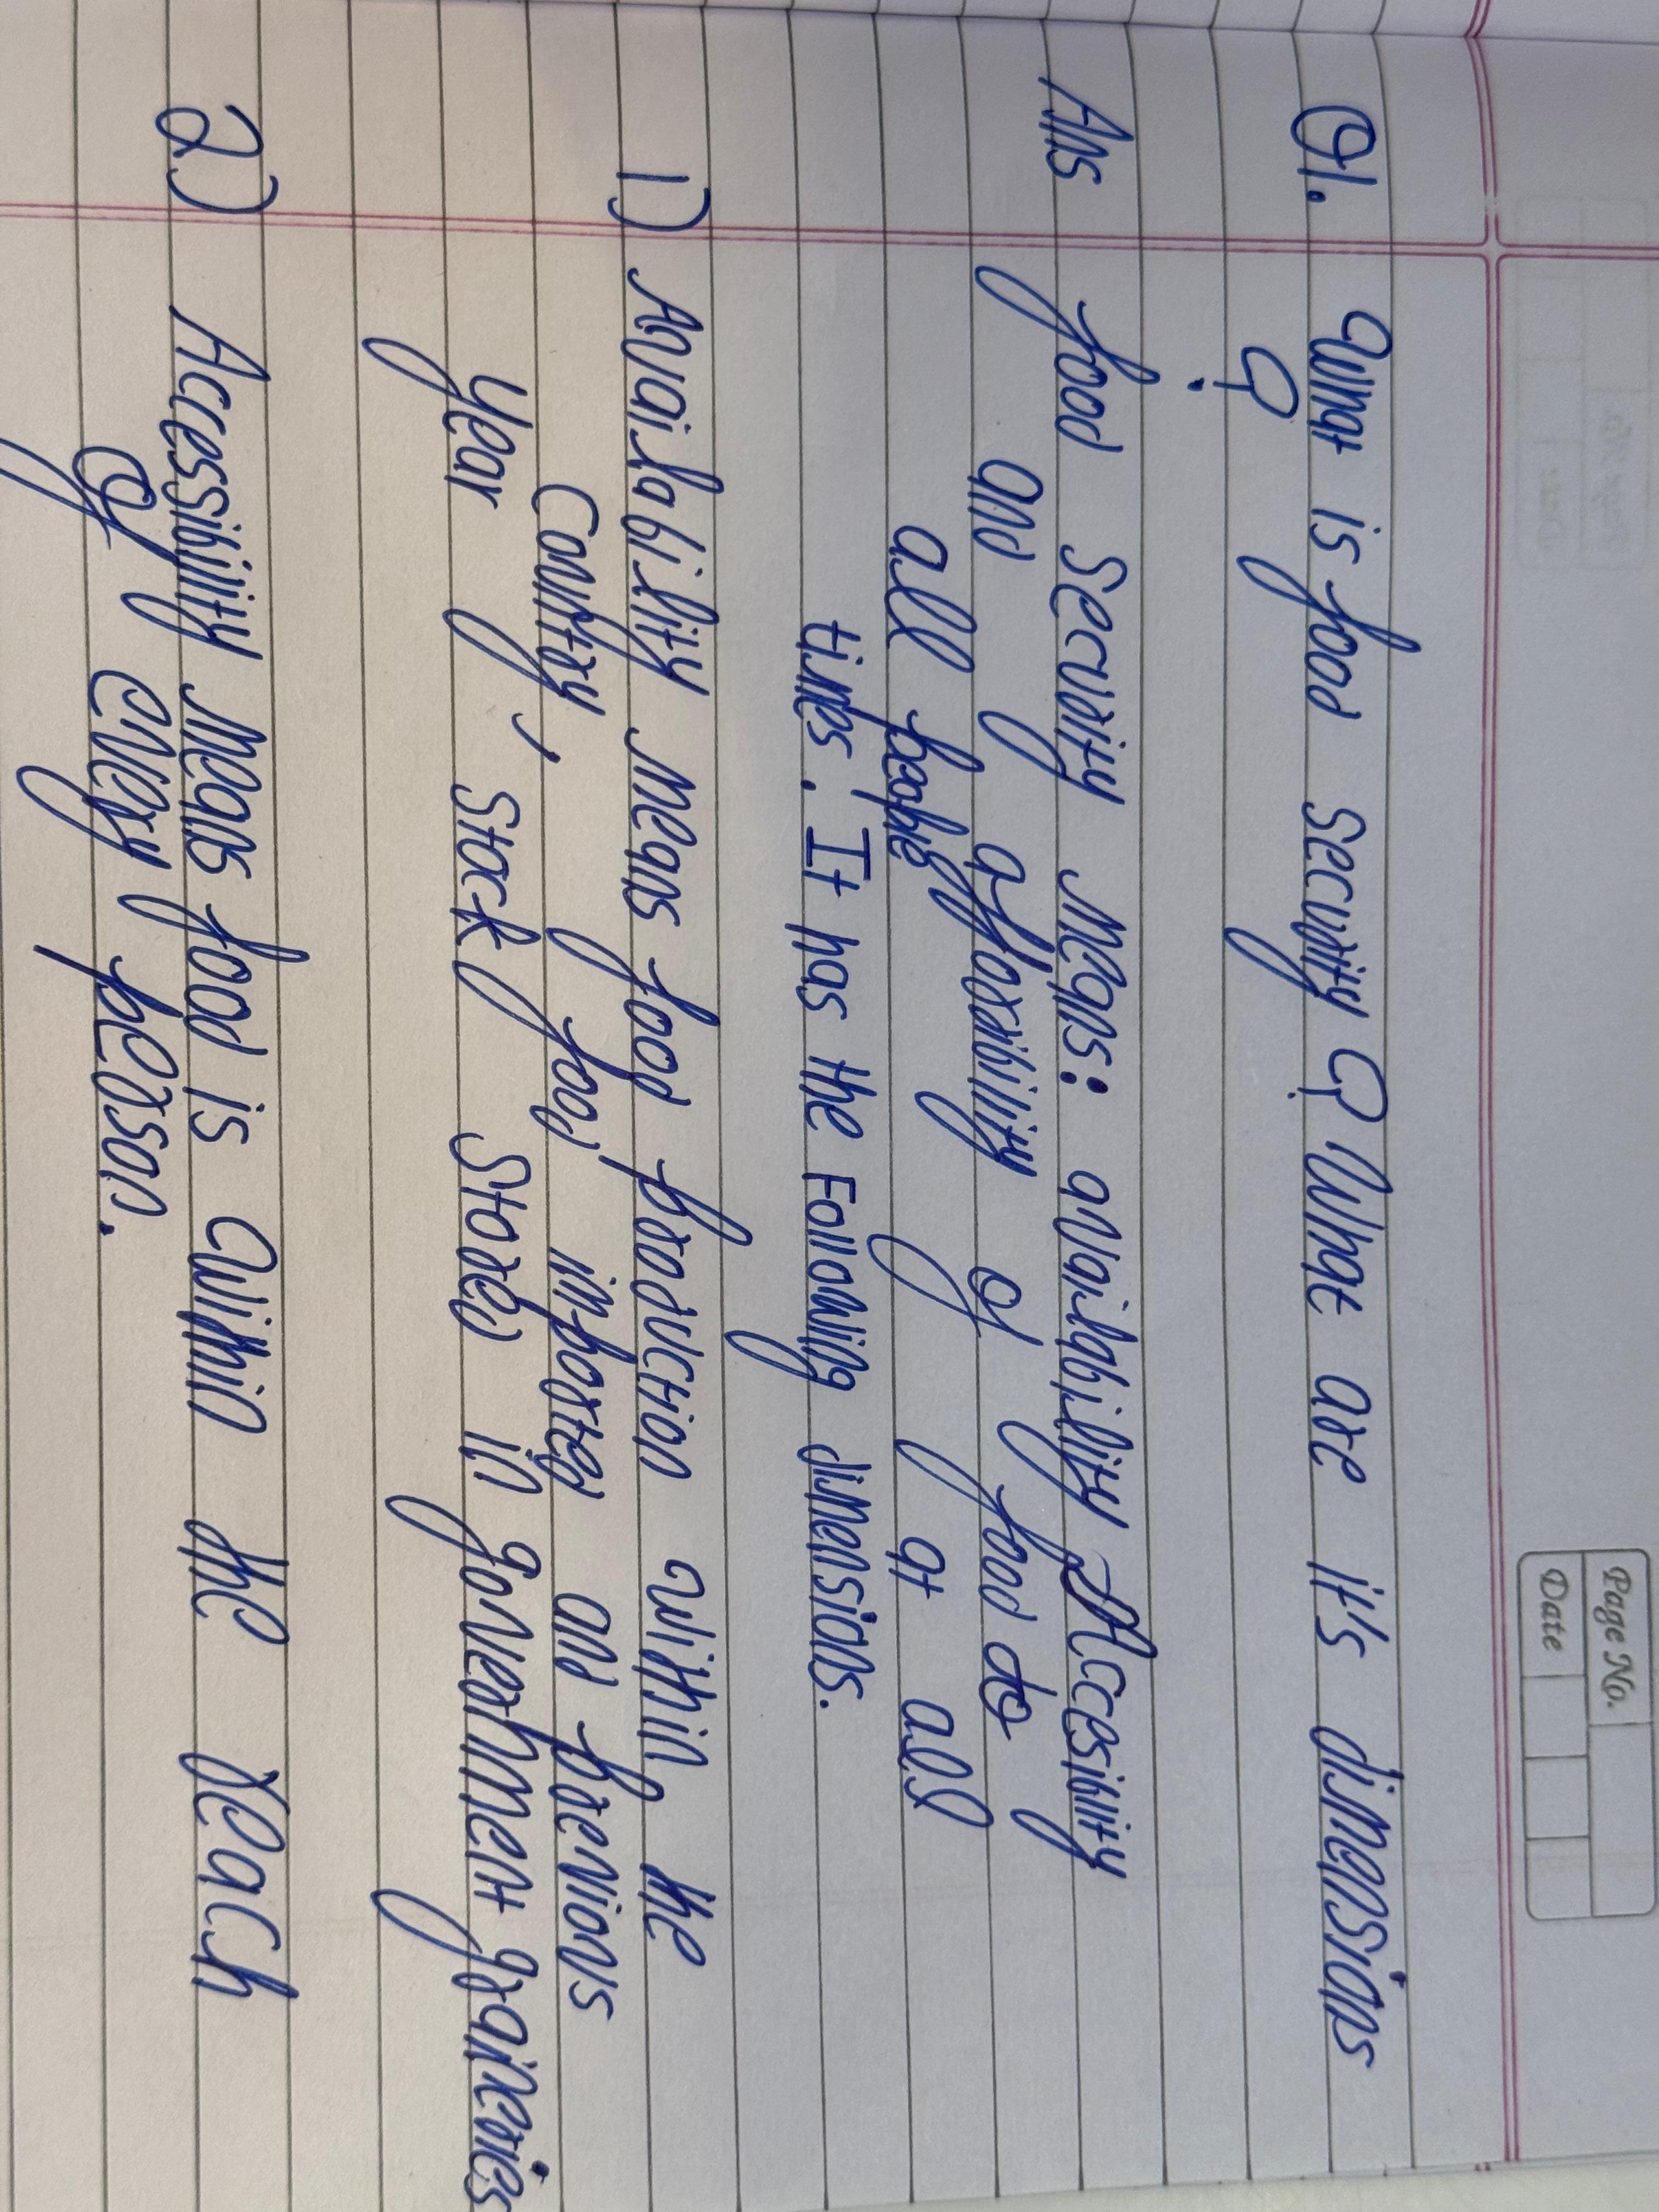 Page No.
Date
Q1. What is food security? What are it's dimensions
?
Ans food security means: availability Accesibility
and affordibility of food to
all people at all
times. It has the Following dimensions.
1) Availability means food production within the
Country, food imported and previous
year stock stored in government graineries
2) Accessibility means food is within the reach
of every person.